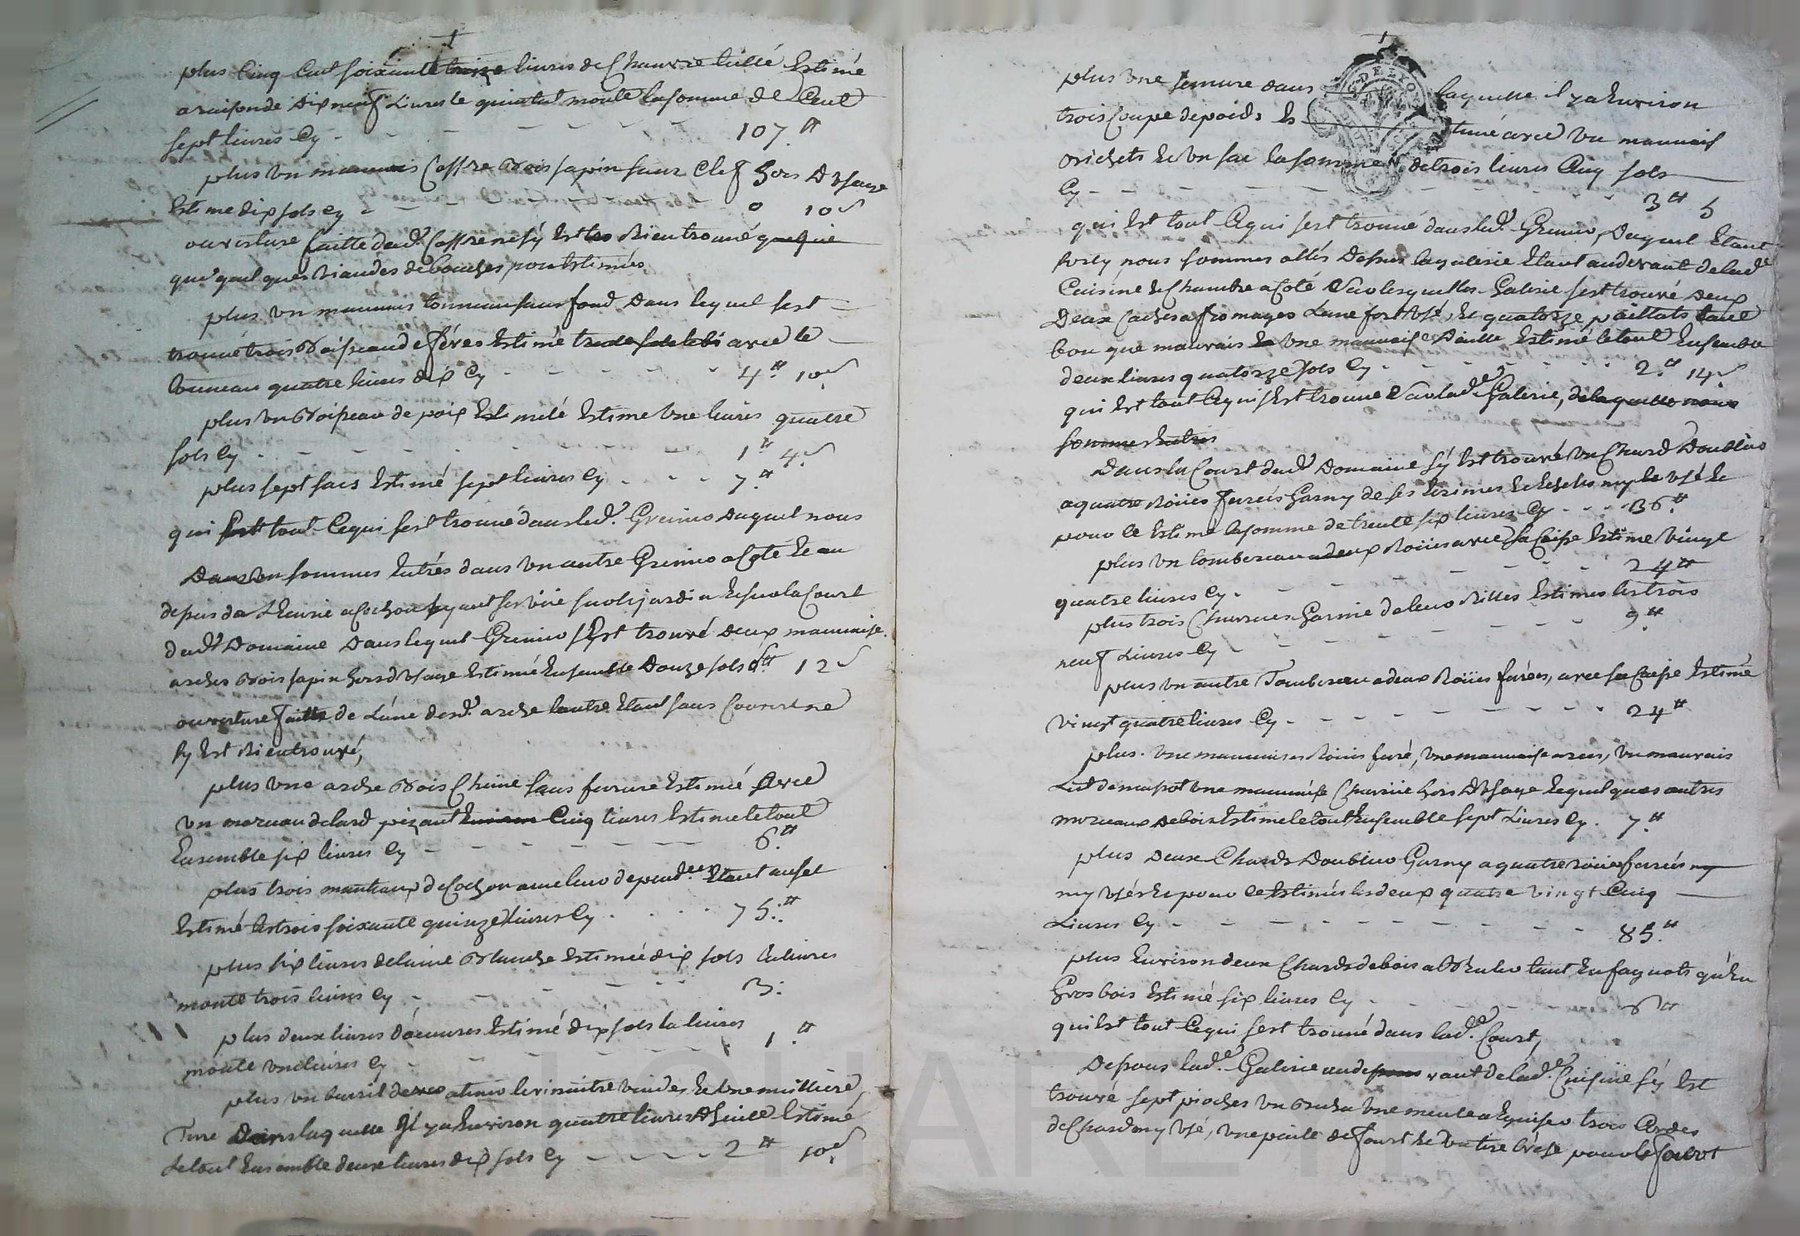 plus Cinq Cent soixante treize livres de Chanvre tillé Estimé
a raison de Dix neuf Livres le quintal monte la somme de Cent
sept livres Cy - 107 ₶
plus un mauvais Coffre Bois sapin sans Clef hors D'usage
Estime dix sols Cy - 0 10 s
ouverture faitte dud.t Coffre ne s'y Est Rien trouvé
plus un mauvais tonneau sans fond Dans lequel sest
trouvé trois Boisseaud de féves Estimé avec le
tonneau quatre livres dix Cy - 4 ₶ 10 s
plus un Boisseau de poix mélé Estime Une livres quatre
sols Cy - 1 ₶ 4 s
plus sept sacs Estimé sept livres Cy - 7 ₶
qui Est tout Ce qui sest trouvé dans led.t Grenier Duquel nous
sommes Entrés dans un autre Grenier a Coté Et au
depus de L'Ecurie a Cochon ayant ses vüe sur le jardin Et sur la Court
dud.t Domaine Dans lequel Grenier s'Est trouvé Deux mauvaise
arches Bois sapin hors d'usage Estimé Ensemble Douze sols 12 s
ouverture faitte de L'une desd. arche lautre Etant sans Couvert ne
sy Est Rien trouvé,
plus une arche Bois Chéine sans ferrure Estimé Avec
un morceau de lard pezant Cinq livres Estime le tout
Ensemble six livres Cy - 6 ₶
plus trois manteaux de Cochon avec leur depend.ces Etant au sel
Estimé les trois soixante quinze livres Cy - 75 ₶
plus six livres de laine Blanche Estimée dix sols la livres
monte trois livres Cy - 3
plus deux livres Estimé dix sols la livres
monte une livres Cy - 1 ₶
plus un baril Et une
Dans laquelle Il y a Environ quatre livres D'huile Estimé
le tout Ensemble deux livres dix sols Cy - 2 ₶ 10 s
plus Une dans laquelle il y a Environ
trois Coupe de poids avec un mauvais
Et un sac la somme de trois livres Cinq sols
Cy - 3 ₶ 5
qui Est tout Ce qui sest trouvé dans led.t Grenier, Duquel Etant
sorty nous sommes allés Depus la galerie Etant au devant de lad.e
Cuisine Et Chambre a Coté Dans lesquelles Galerie sest trouvé Deux
Deux Caches a fromages L'une fort usé, Et quatorze paillats tant
bon que mauvais Une mauvaise Estimé le tout Ensemble
deux Livres quatorze sols Cy - 2 ₶ 14 s
qui Est tout Ce qui s'Est trouvé Dans lad.e Galerie, de laquelle nous
somme Entrés
Dans la Court dud.t Domaine s'y Est trouvé un Chard Doublier
a quatre Roües ferrés Garny de ses Et Echelles my usé Et
pour ce Estimé la somme de trente six livres Cy - 36 ₶
plus un tombereau a deux Roües avec sa Caisse Estimé vingt
quatre livres Cy - 24 ₶
plus trois Charrues Garnie de leur Rilles Estimes les trois
neuf Livres Cy - 9 ₶
plus un autre Tombereau a deux Roües farées, avec sa Caisse Estimé
vingt quatre livres Cy - 24 ₶
plus une mauvaises Roües faré, une mauvaise un mauvais
une mauvaise Charrüe hors D'usage Et quelques autres
morceaux de bois Estimé le tout Ensemble sept Livres Cy - 7 ₶
plus Deux Chards Doublier Garny a quatre roües ferrés my
my usés Et pour ce Estimés les deux quatre vingt Cinq
Livres Cy - 85 ₶
plus Environ deux Chards de bois a Bruler tant En fagnots qu'En
Gros bois Estimé six livres Cy - 6 ₶
qui Est tout Ce qui sest trouvé dans lad.e Court,
Depous lad.e Galerie au devant de lad.e Cuisine s'y Est
trouvé sept pioches un une meule a Eguiser trois
usé, une paile de fourt Et un tire brése pour le fourt